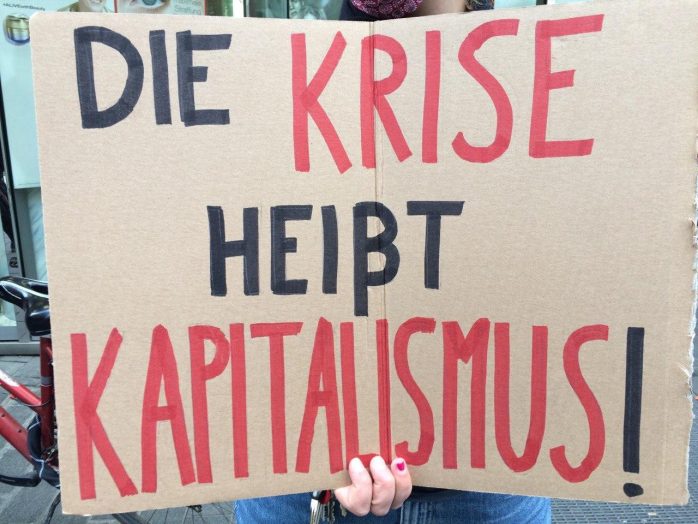 DIE KRISE
HEIßT
KAPITALISMUS!